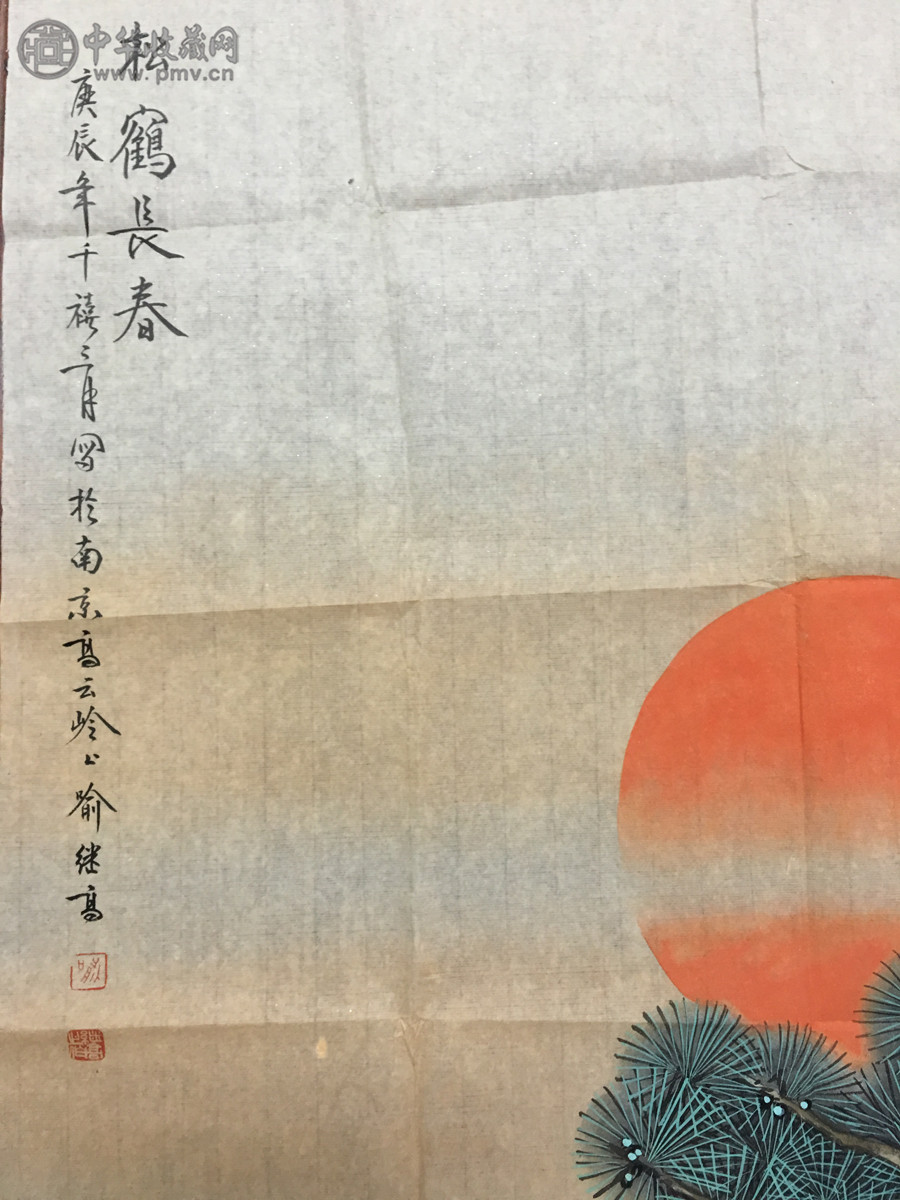 中华收藏网
www.pmv.cn
松鶴長春
庚辰年千禧三月寫於南京高云岭上喻继高